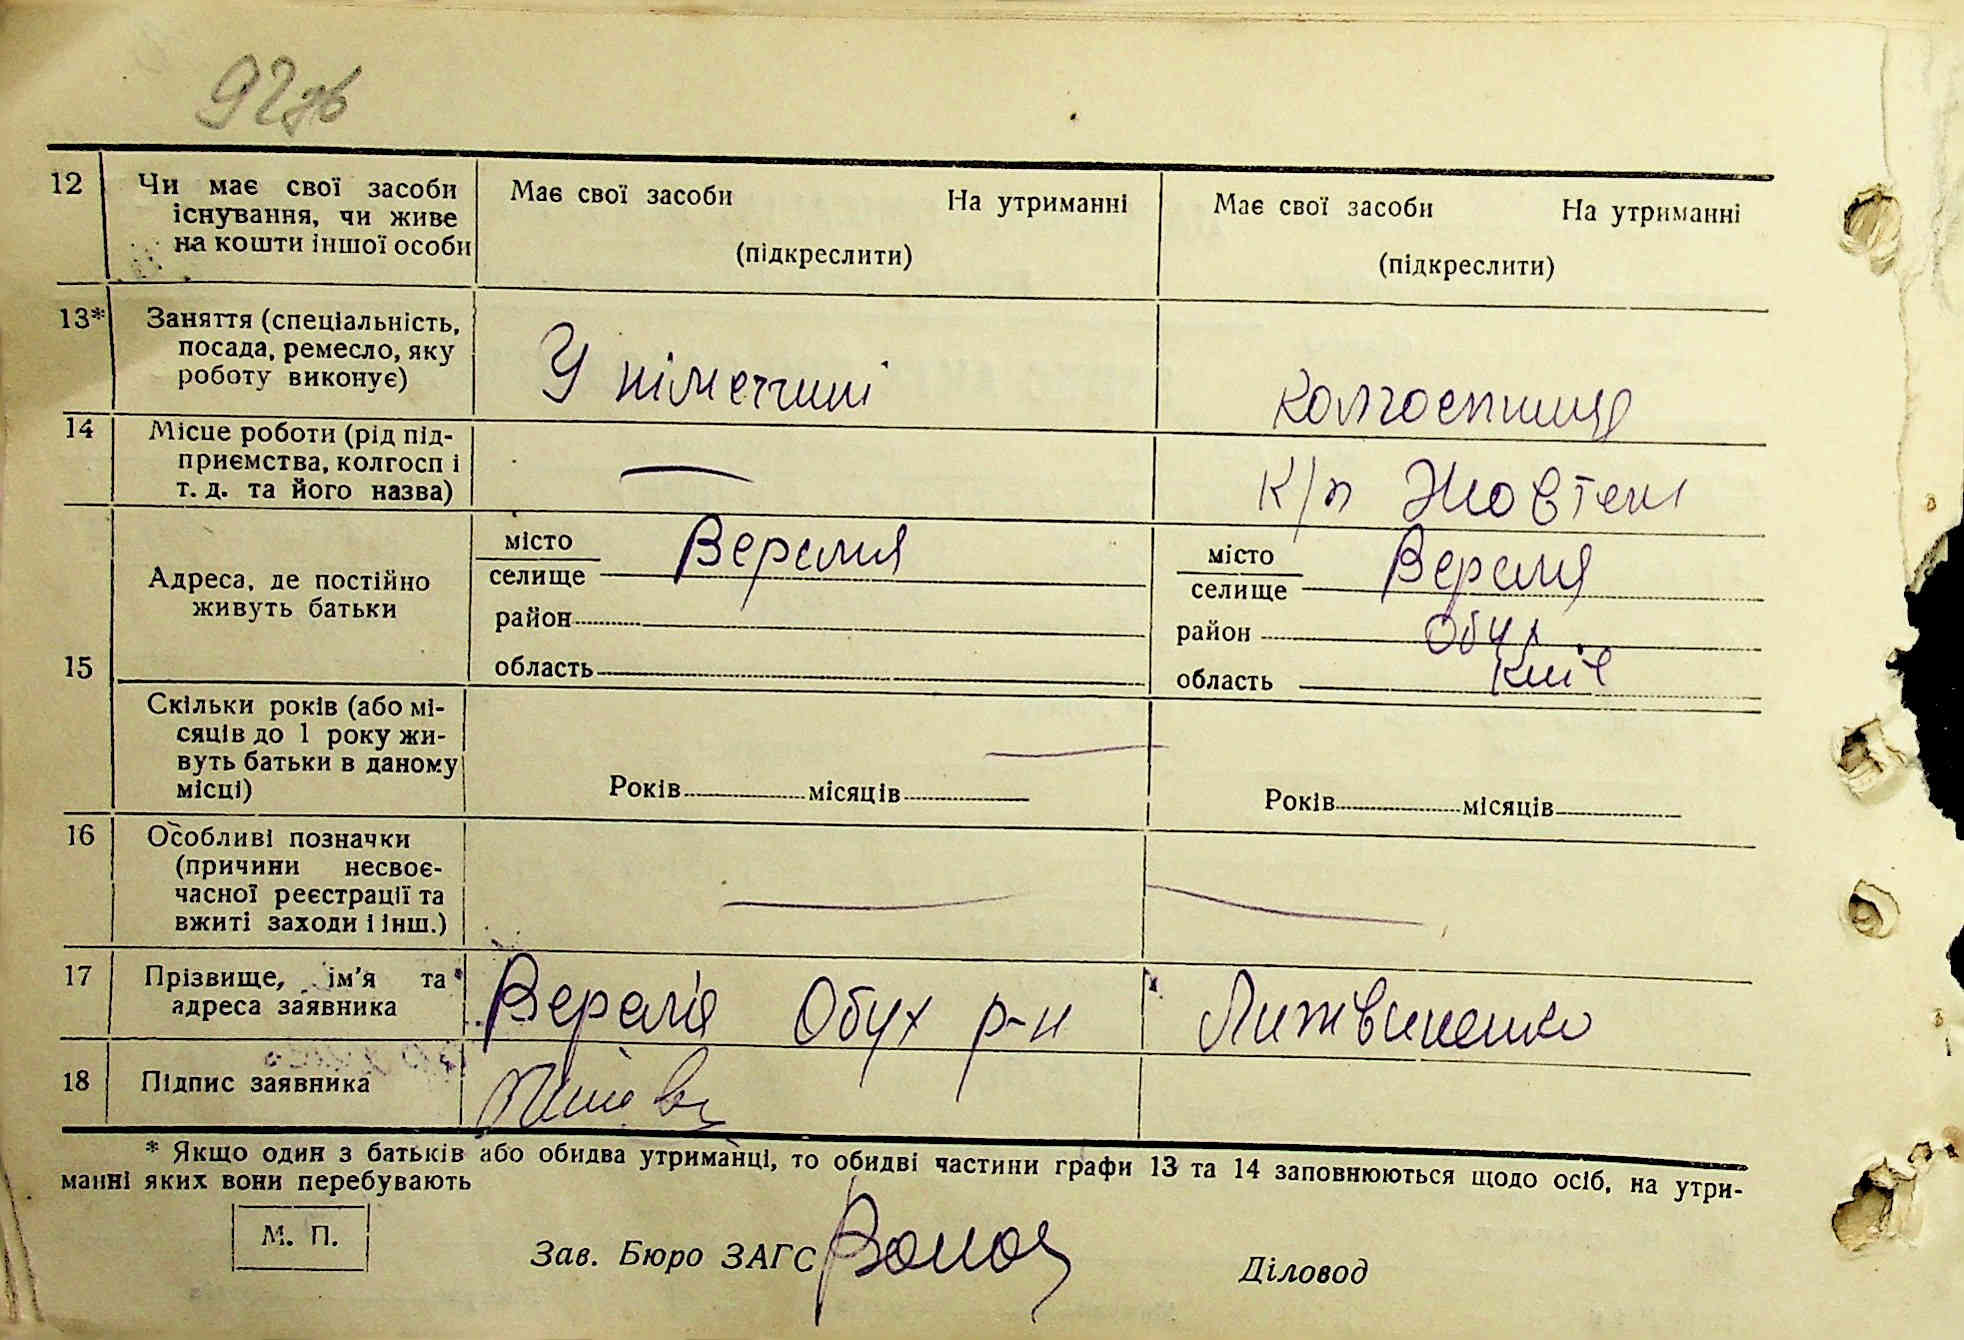 92зв
12 Чи має свої засоби існування, чи живе на кошти іншої особи
Має свої засоби На утриманні
(підкреслити)
Має свої засоби На утриманні
(підкреслити)
13* Заняття (спеціальність, посада, ремесло, яку роботу виконує)
У німеччині
колгоспниця
14 Місце роботи (рід підприємства, колгосп і т. д. та його назва)
—
К/п Жовтень
15
Адреса, де постійно живуть батьки
місто
селище Веремя
район
область
місто
селище Веремя
район Обух
область Київ
Скільки років (або місяців до 1 року живуть батьки в даному місці)
Років місяців
Років місяців
16 Особливі позначки (причини несвоєчасної реєстрації та вжиті заходи і інш.)
— —
17 Прізвище, ім'я та адреса заявника
Верем'я Обух р-н Литвиненко
18 Підпис заявника
* Якщо один з батьків або обидва утриманці, то обидві частини графи 13 та 14 заповнюються щодо осіб, на утри-
манні яких вони перебувають
М. П.
Зав. Бюро ЗАГС
Діловод